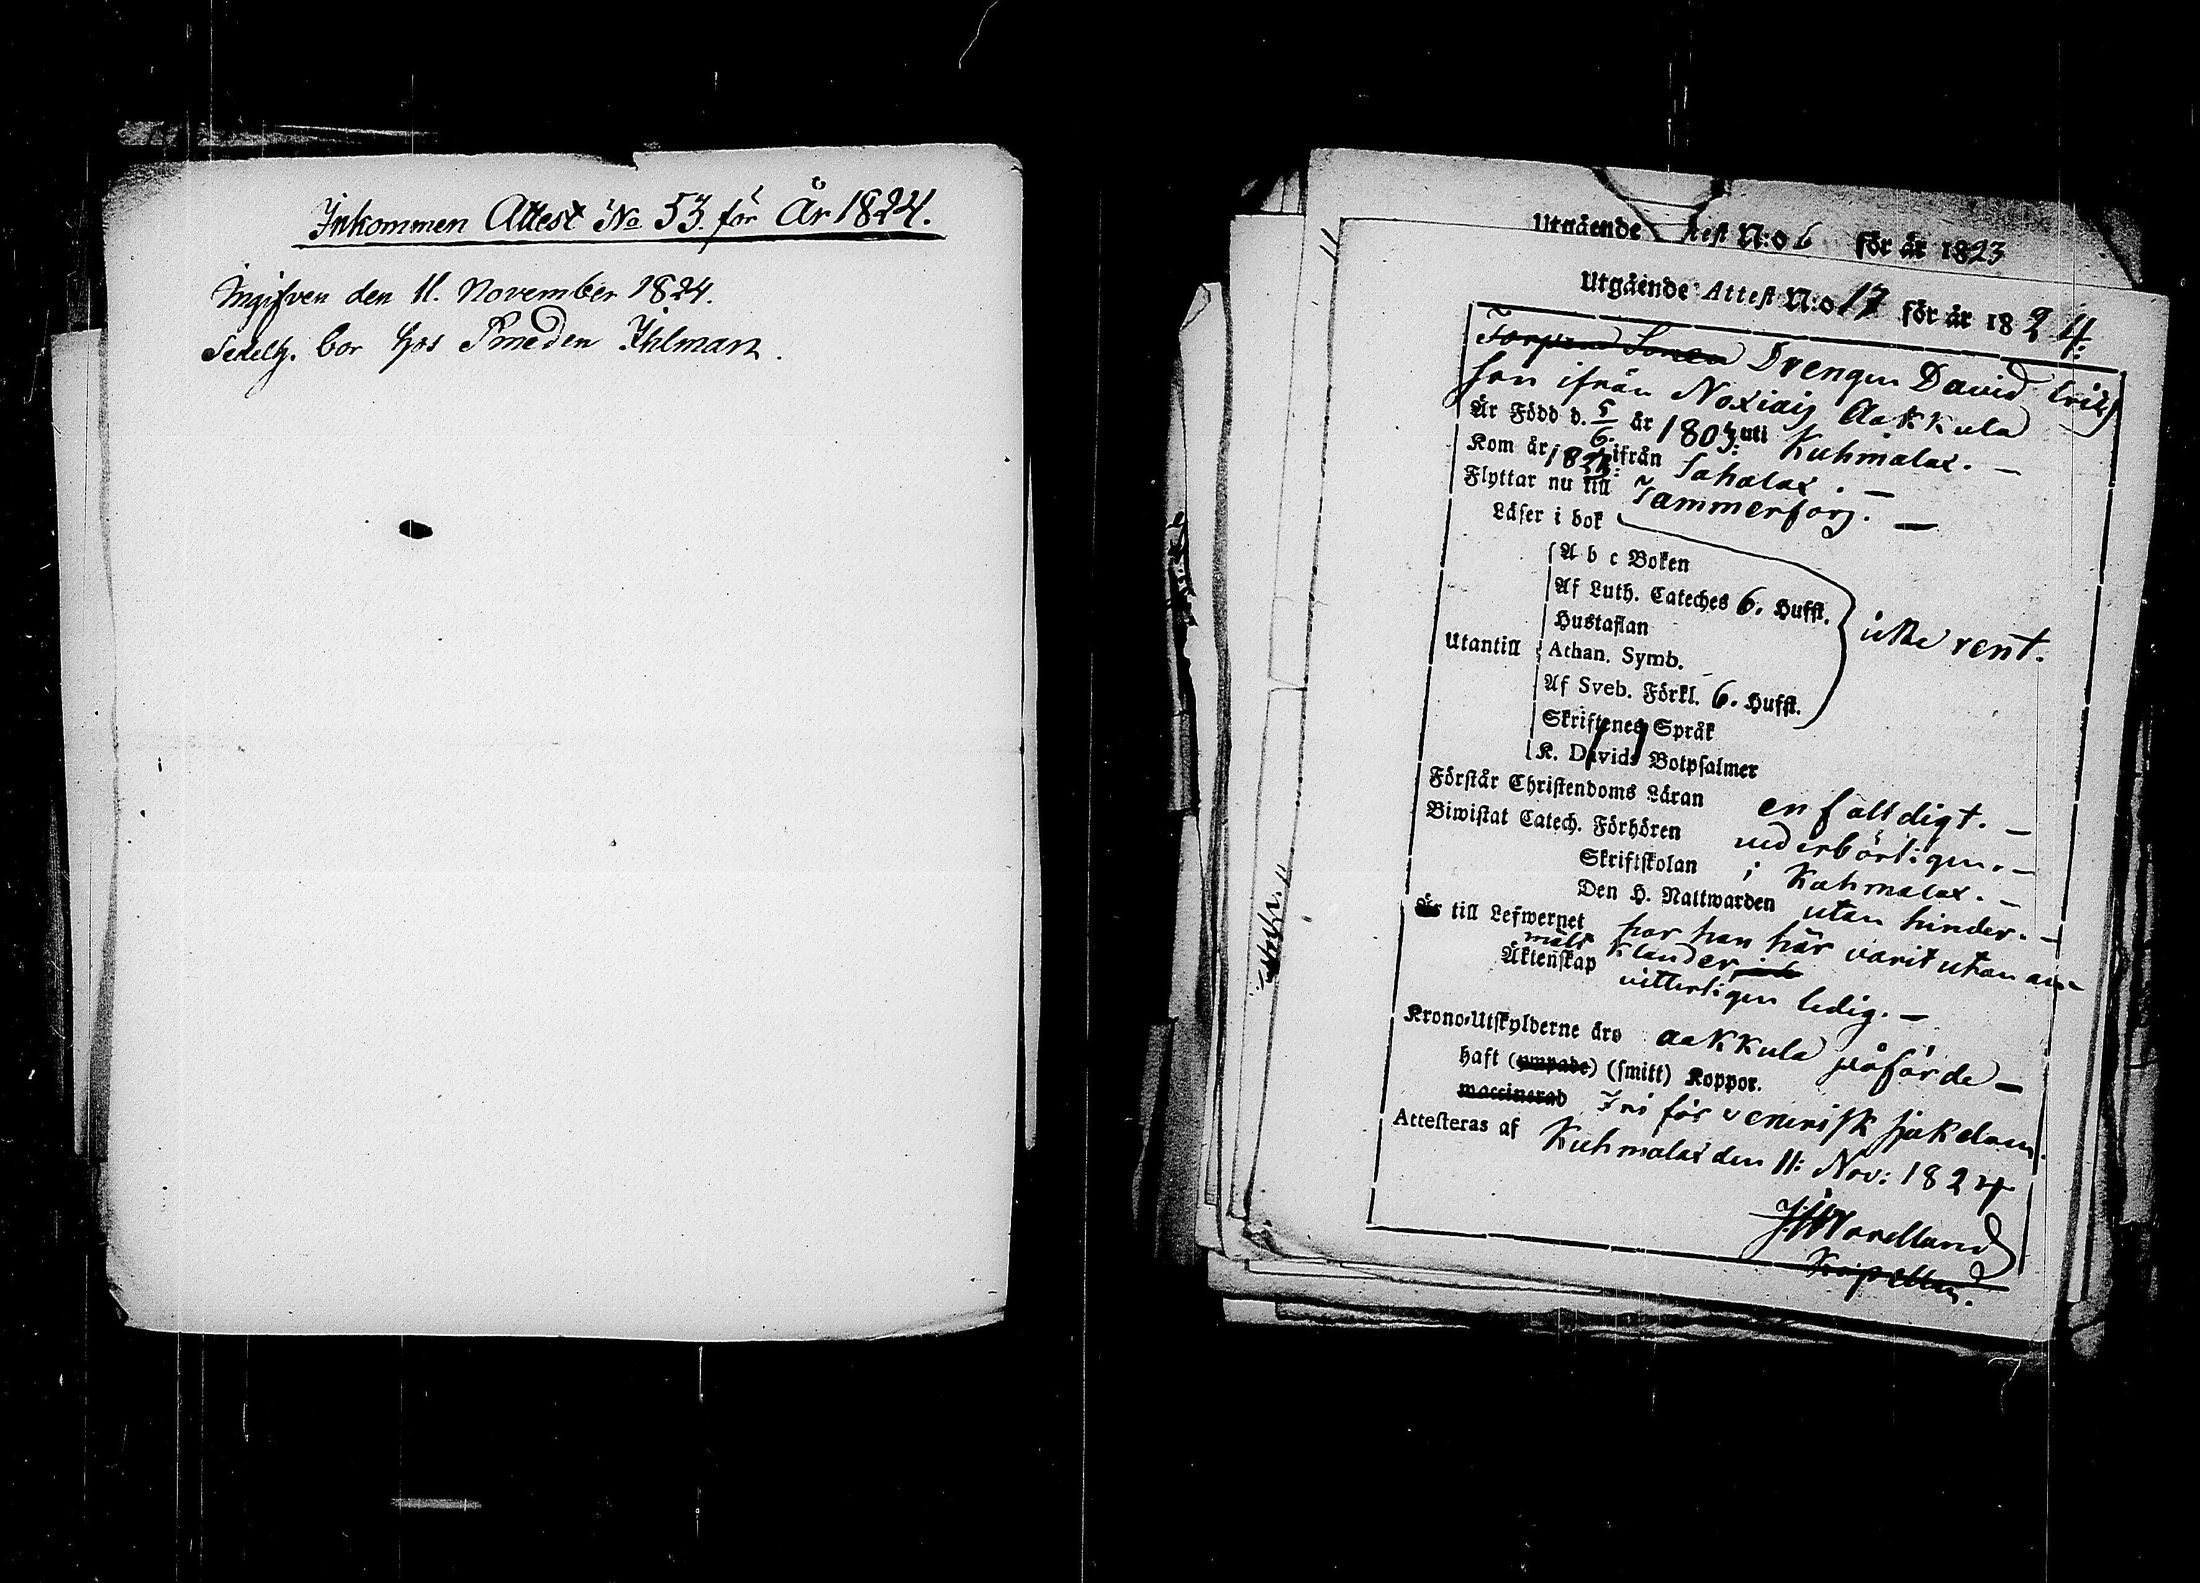 Inkommen Attest No 53. för År 1824.
Ingifven den 11. November 1824.
Sedelh. bor hos Smeden Ihlman.
Utgående Attest N:o 6 för år 1823
Utgående Attest N:o 17 för år 1824:
Drengen David Eriks
son ifrån Noxiais Aakkula
Är Född d. 5/6 år 1803: uti Kuhmalax. —
Kom år 1822: ifrån Sahalax. —
Flyttar nu till Tammerfors. —
Läser i bok
A b c Boken
Af Luth. Cateches 6. Hufst.
Hustaflan
icke rent.
Utantill
Athan. Symb.
Af Sveb. Förkl. 6. Hufst.
Skriftenes Språk
K. Davids Botpsalmer
Förstår Christendoms Läran enfalldigt. —
Biwistat Catech. Förhören vederbörligen. —
Skriftskolan i Kuhmalax. —
Den H. Nattwarden utan hinder. —
Är till Lefwernet har han här varit utan an-
märkt klander
Äktenskap vitterligen ledig. —
Krono-Utskylderne äro Aakkula påförde —
haft (ympade) (smitt) Koppor.
waccinerad Fri för venerisk sjukdom.
Attesteras af Kuhmalax den 11: Nov: 1824